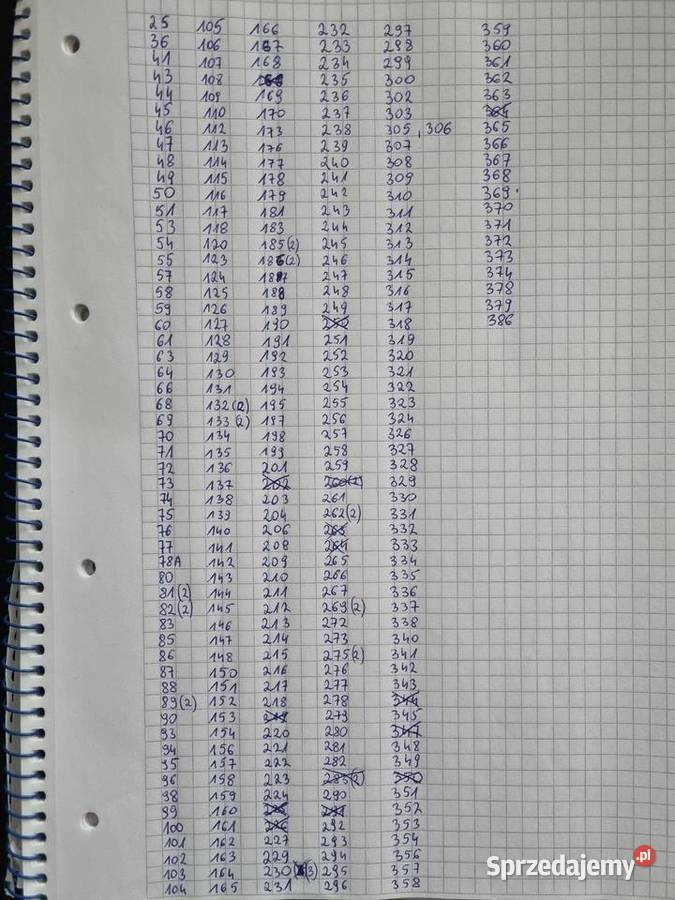 25
36
41
43
44
45
46
47
48
49
50
51
53
54
55
57
58
59
60
61
63
64
66
68
69
70
71
72
73
74
75
76
77
78A
80
81(2)
82(2)
83
85
86
87
88
89(2)
90
93
94
95
96
98
99
100
101
102
103
104
105
106
107
108
109
110
112
113
114
115
116
117
118
120
123
124
125
126
127
128
129
130
131
132(2)
133(2)
134
135
136
137
138
139
140
141
142
143
144
145
146
147
148
150
151
152
153
154
156
157
158
159
160
161
162
163
164
165
166
167
168
169
170
173
176
177
178
179
181
183
185(2)
186(2)
187
188
189
190
191
192
193
194
195
197
198
199
201
202
203
204
206
208
209
210
211
212
213
214
215
216
217
218
219
220
221
222
223
224
225
226
227
229
230(3)
231
232
233
234
235
236
237
238
239
240
241
242
243
244
245
246
247
248
249
250
251
252
253
254
255
256
257
258
259
260(2)
261
262(2)
263
264
265
266
267
269(2)
272
273
275(2)
276
277
278
279
280
281
282
290
291
292
293
294
295
296
297
298
299
300
302
303
305, 306
307
308
309
310
311
312
313
314
315
316
317
318
319
320
321
322
323
324
326
327
328
329
330
331
332
333
334
335
336
337
338
340
341
342
343
344
345
347
348
349
350
351
352
353
354
356
357
358
359
360
361
362
363
364
365
366
367
368
369
370
371
372
373
374
378
379
386
Sprzedajemy.pl